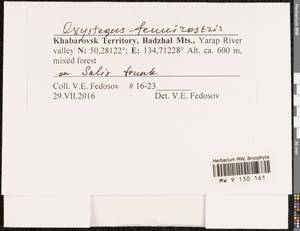 Oxystegus tenuirostris
Khabarovsk Territory, Badzhal Mts., Yarap River
valley N: 50,28122°; E: 134,71228° Alt. ca. 600 m,
mixed forest
on Salix trunk
Coll. V.E. Fedosov # 16-23
29.VII.2016 Det. V.E. Fedosov
Herbarium MW, Bryophyta
MW 9 130 161